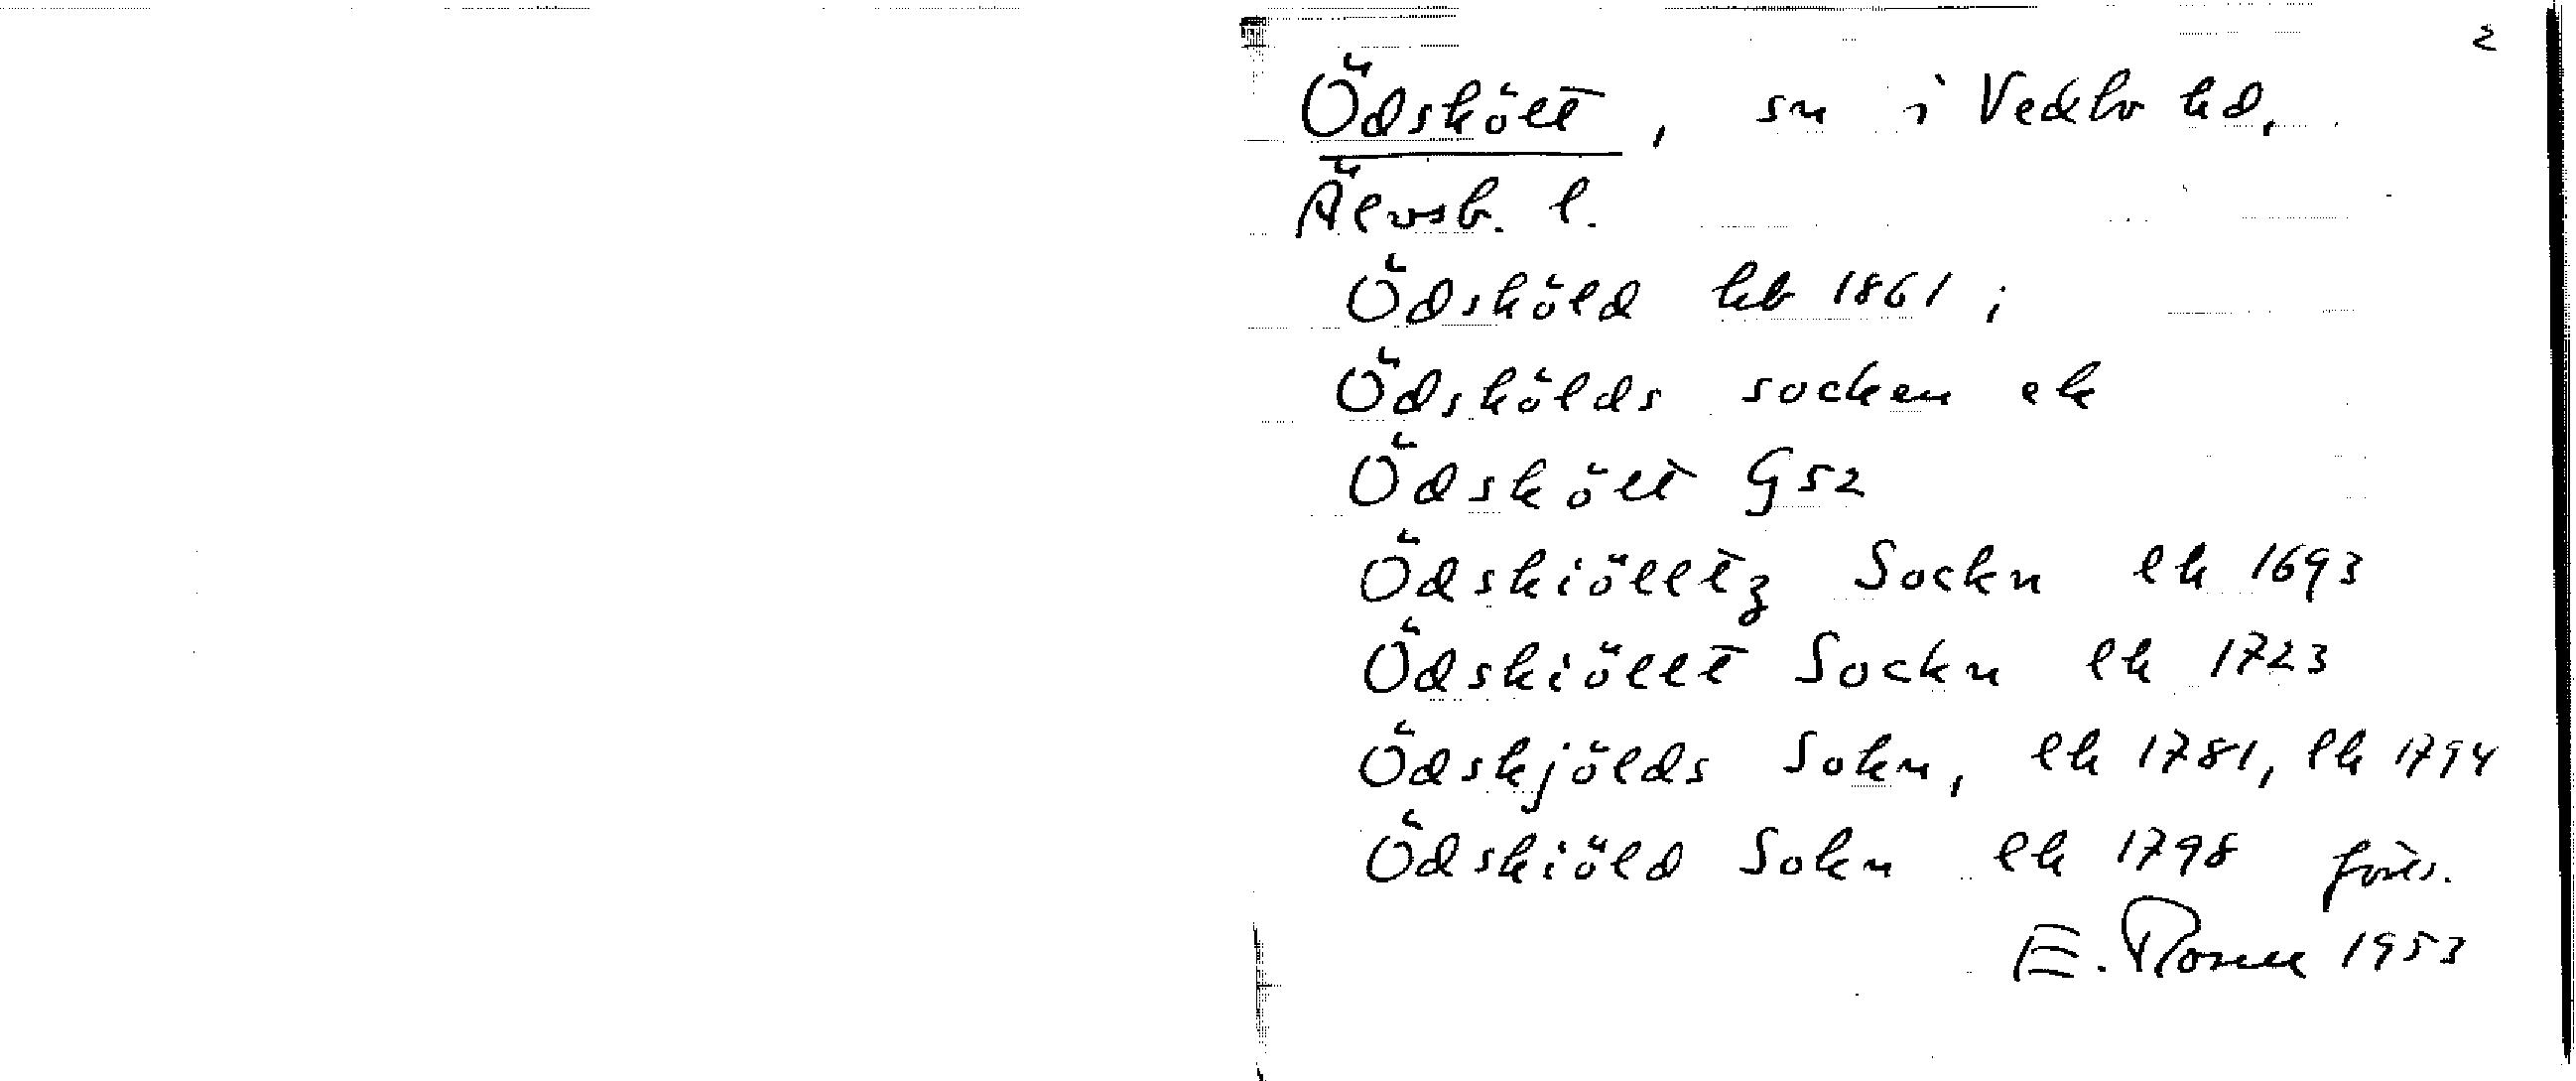 2
Ödskölt, sn i Vedbo hd,
Älvsb. l.
Ödsköld hb 1861;
Ödskölds socken ek
Ödskölt G52
Ödskiölltz Sockn lk 1693
Ödskiöllt Sockn lk 1723
Ödskjölds Sokn, lk 1781, lk 1794
Ödskiöld Sokn lk 1798
E. Rosell 1953